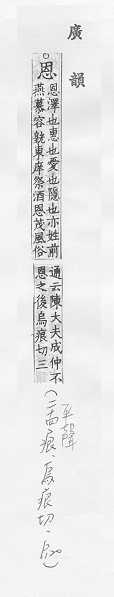 廣韻
恩
恩澤也惠也愛也隱也亦姓前
燕慕容皝東庠祭酒恩茂風俗
通云陳大夫成仲不
恩之後烏痕切三
平聲
(二十四痕、烏痕切、